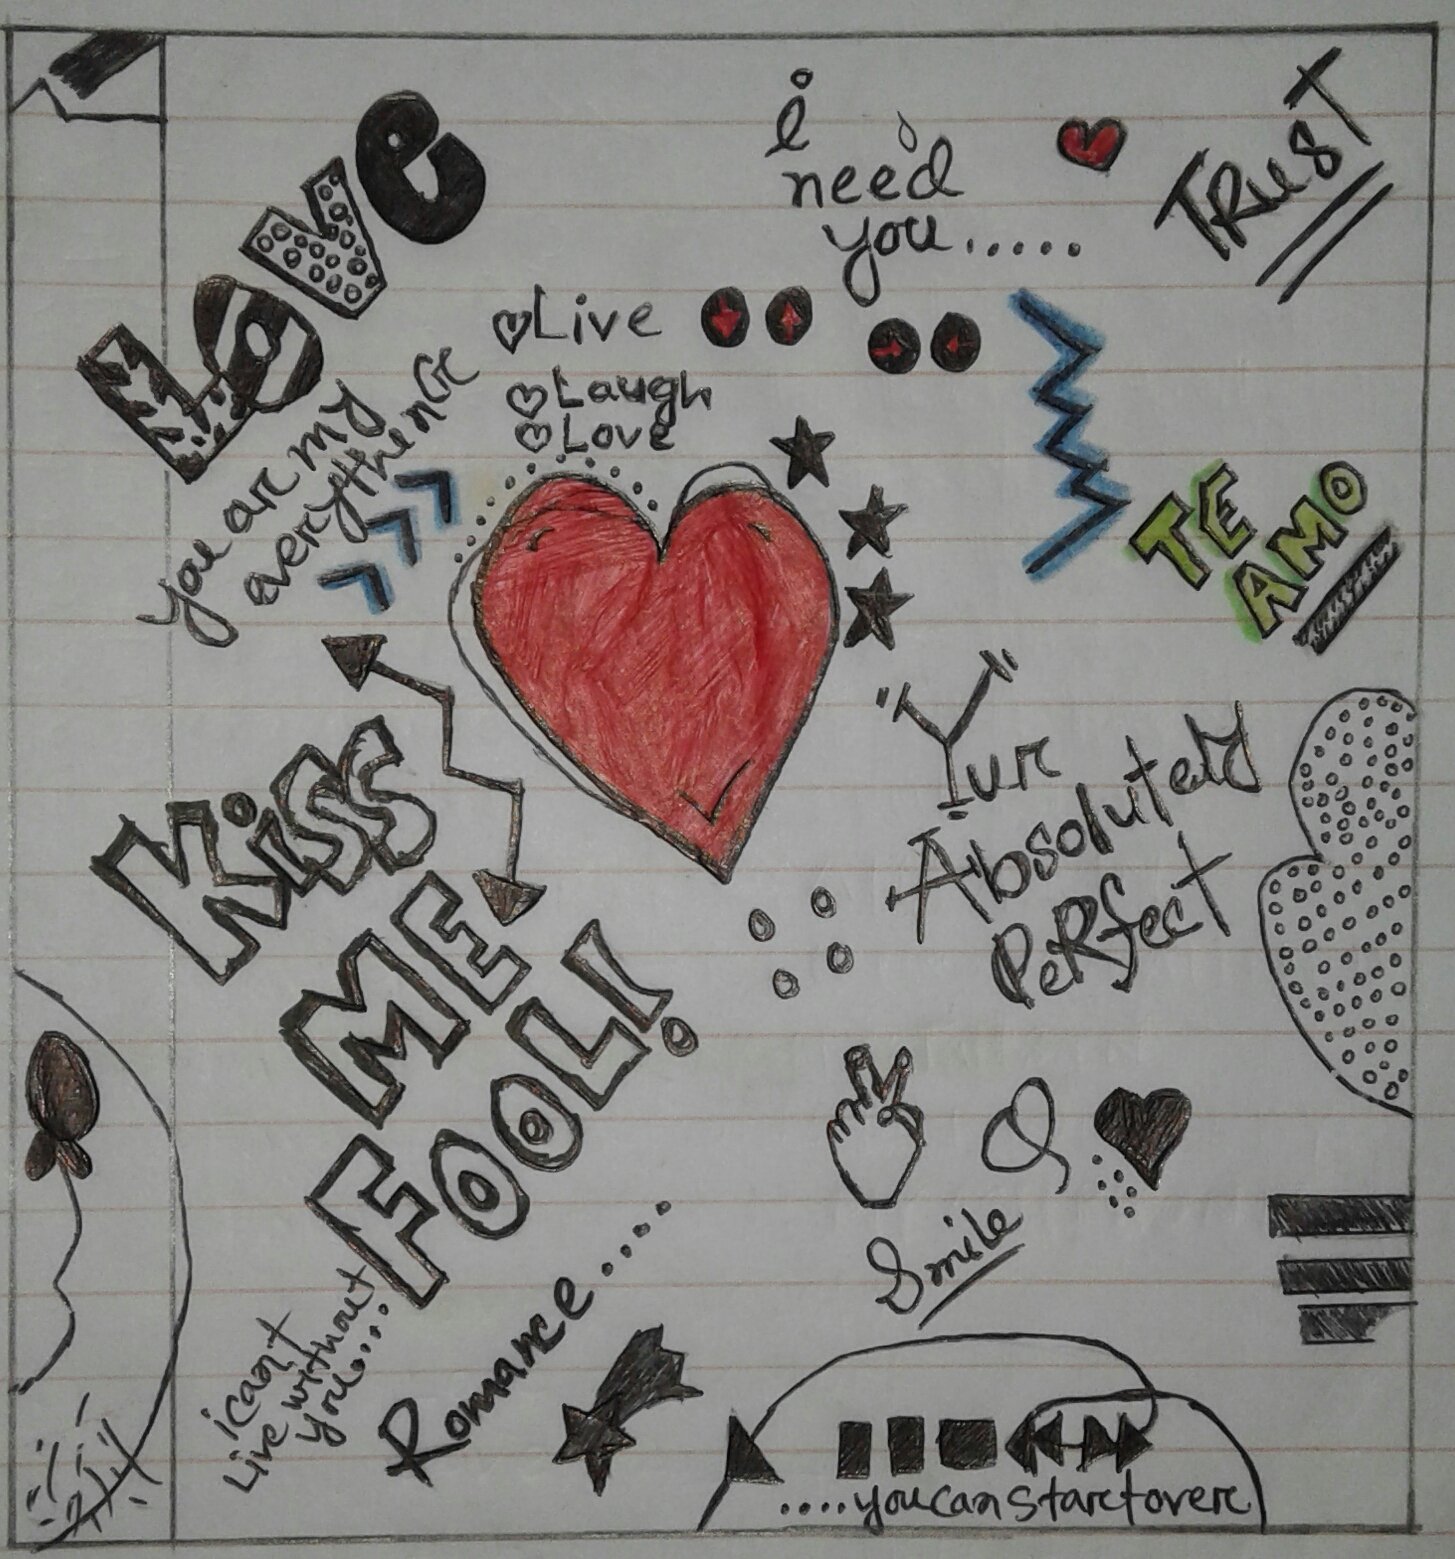 Love
i
need
you.....
TRUST
Live
Laugh
Love
you are my
everything
TE
AMO
"Y"ur
Absolutely
PeRfect
Kiss
ME
FOOL!
Smile
i can't
Live without
you....
Romance.....
....you can start over